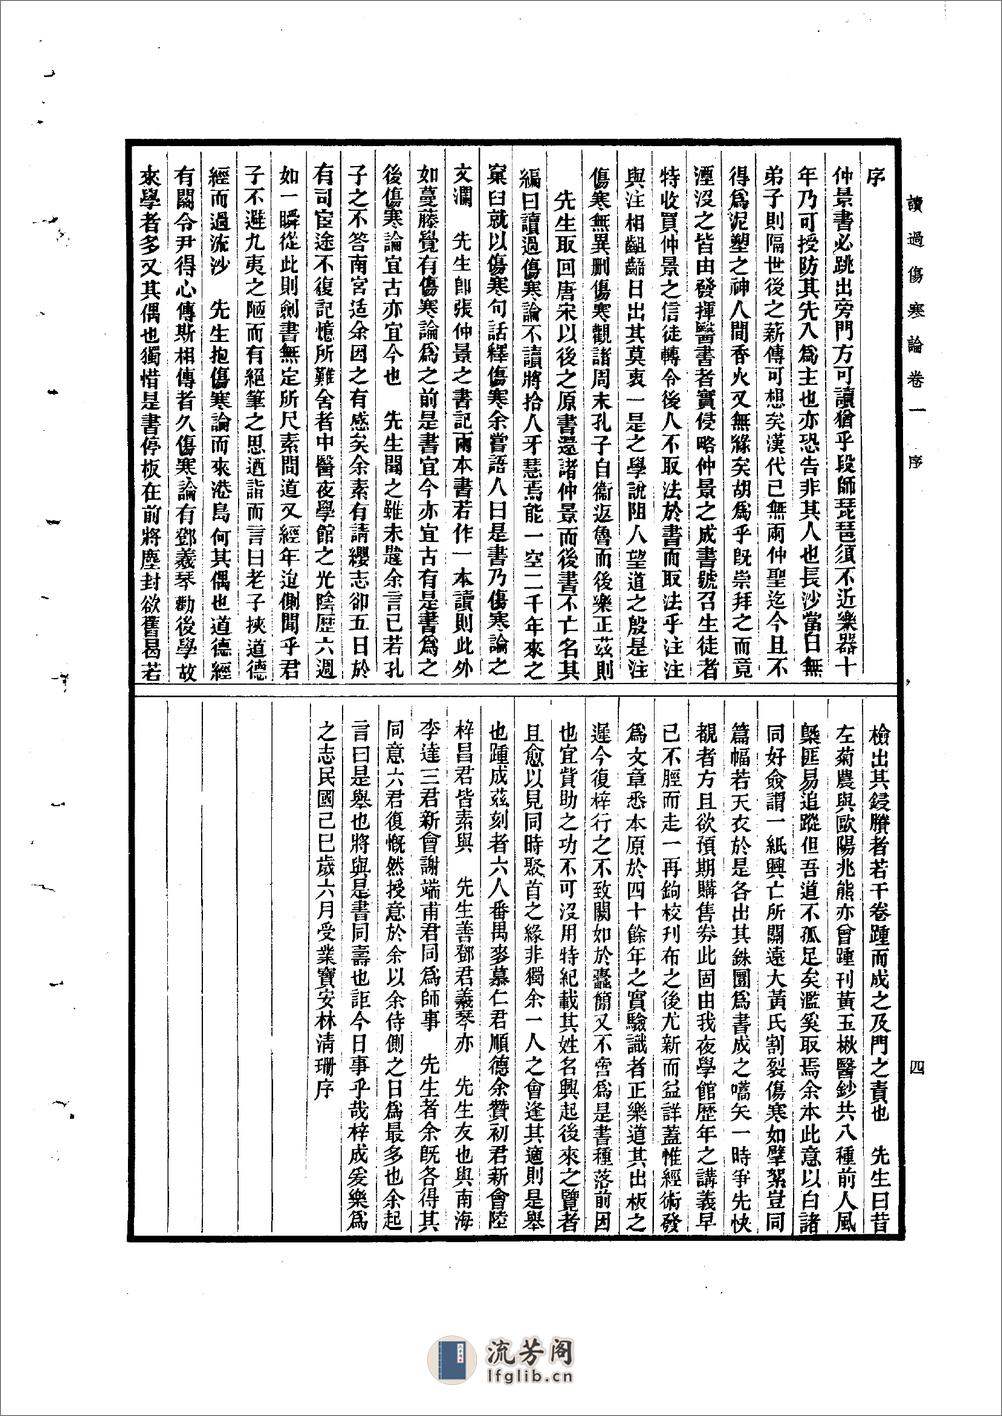 讀過傷寒論卷一 序
四
序
仲景書必跳出旁門方可讀猶乎段師琵琶須不近樂器十
年乃可授防其先入爲主也亦恐告非其人也長沙當日無
弟子則隔世後之薪傳可想矣漢代已無兩仲聖迄今且不
得爲泥塑之神人間香火又無緣矣胡爲乎旣崇拜之而竟
湮沒之皆由發揮醫書者實侵略仲景之成書號召生徒者
特收買仲景之信徒轉令後人不取法於書而取法乎注注
與注相齟齬日出其莫衷一是之學說阻人望道之殷是注
傷寒無異删傷寒觀諸周末孔子自衞返魯而後樂正茲則
先生取回唐宋以後之原書還諸仲景而後書不亡名其
編曰讀過傷寒論不讀將拾人牙慧焉能一空二千年來之
窠臼就以傷寒句話釋傷寒余嘗語人曰是書乃傷寒論之
文瀾 先生卽張仲景之書記兩本書若作一本讀則此外
如蔓藤覺有傷寒論爲之前是書宜今亦宜古有是書爲之
後傷寒論宜古亦宜今也 先生聞之雖未遽余言已若孔
子之不答南宮适余因之有感矣余素有請纓志卻五日於
有司宦途不復記憶所難舍者中醫夜學館之光陰歷六週
如一瞬從此則劍書無定所尺素問道又經年迨側聞乎君
子不避九夷之陋而有絕筆之思迺詣而言曰老子挾道德
經而過流沙 先生抱傷寒論而來港島何其偶也道德經
有關令尹得心傳斯相傳者久傷寒論有鄧羲琴勸後學故
來學者多又其偶也獨惜是書停板在前將塵封欲舊曷若
檢出其錽賸者若干卷踵而成之及門之責也 先生曰昔
左菊農與歐陽兆熊亦曾踵刊黃玉楸醫鈔共八種前人風
槩匪易追蹤但吾道不孤足矣濫奚取焉余本此意以白諸
同好僉謂一紙興亡所關遠大黃氏割裂傷寒如擘絮豈同
篇幅若天衣於是各出其銖團爲書成之嚆矢一時爭先快
覩者方且欲預期購售券此固由我夜學館歷年之講義早
已不脛而走一再鉤校刊布之後尤新而益詳蓋惟經術發
爲文章悉本原於四十餘年之實驗識者正樂道其出板之
遲今復梓行之不致闕如於蠹簡又不啻爲是書種落前因
也宜貲助之功不可沒用特紀載其姓名興起後來之覽者
且愈以見同時聚首之緣非獨余一人之會逢其適則是舉
也踵成茲刻者六人番禺麥慕仁君順德余贊初君新會陸
梓昌君皆素與 先生善鄧君羲琴亦 先生友也與南海
李達三君新會謝端甫君同爲師事 先生者余旣各得其
同意六君復慨然授意於余以余侍側之日爲最多也余起
言曰是舉也將與是書同壽也詎今日事乎哉梓成爰樂爲
之志民國己巳歲六月受業寶安林淸珊序
流芳阁
lfglib.cn